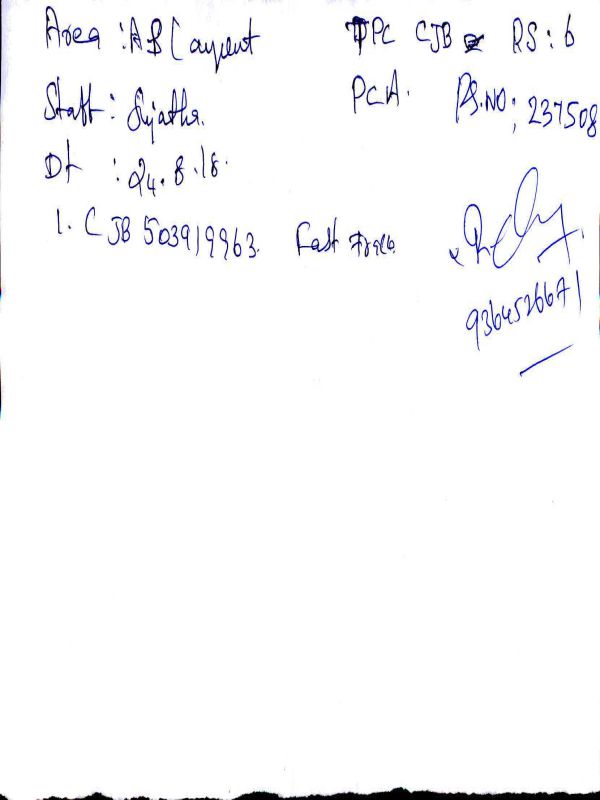 Area : AB Layout TPC CJB RS : 6
Staff : Sujatha. PCA. RS.NO; 237508
Dt : 24.8.18.
1. CJB 503919963. Fast Track
9364526671